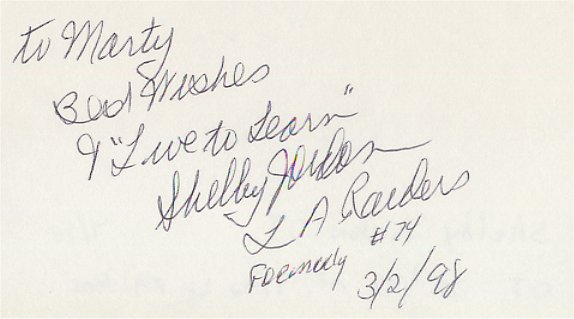 To Marty
Best Wishes
& "Live to Learn"
Shelby Jordan
L A Raiders
#74
Formerly
3/2/98